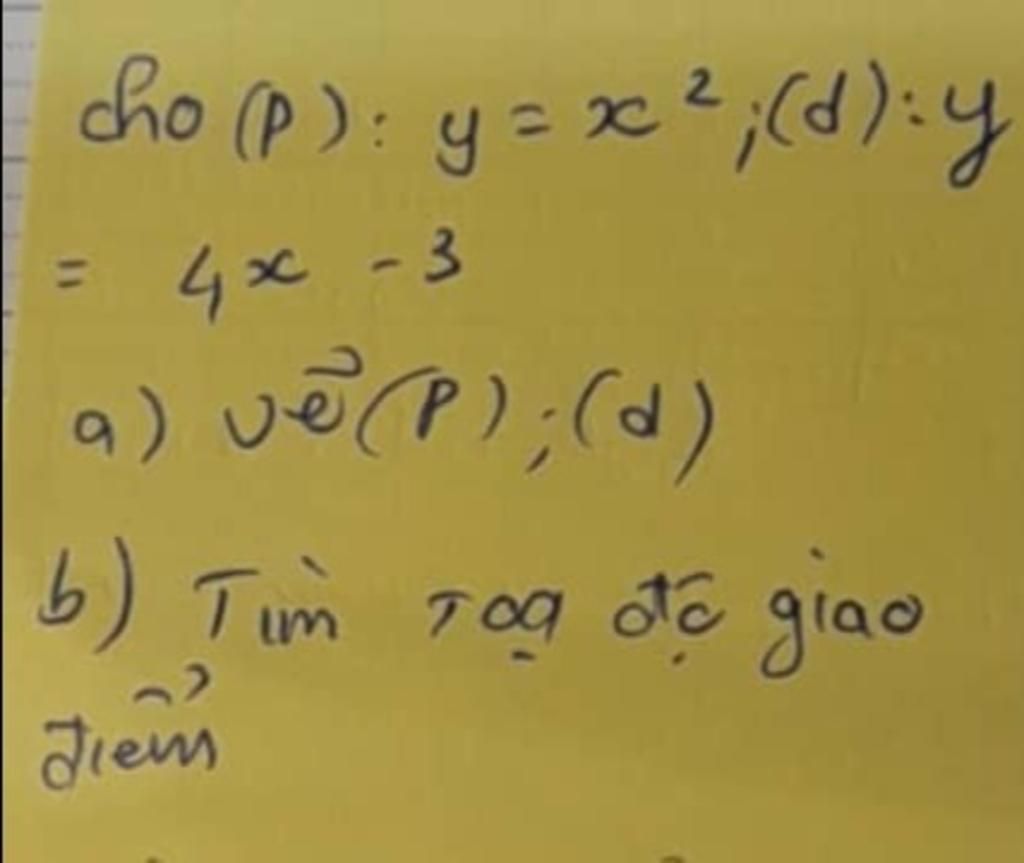 cho (P): y = x²; (d): y
= 4x - 3
a) vẽ (P); (d)
b) Tìm Toạ độ giao
điểm